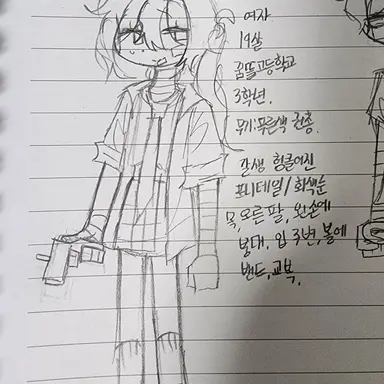 여자
19살
꿈뜰고등학교
3학년.
무기:푸른색 권총.
갈색 헝클어진
포니테일/회색눈
목,오른팔, 왼손에
붕대, 입 주변,볼에
밴드,교복.